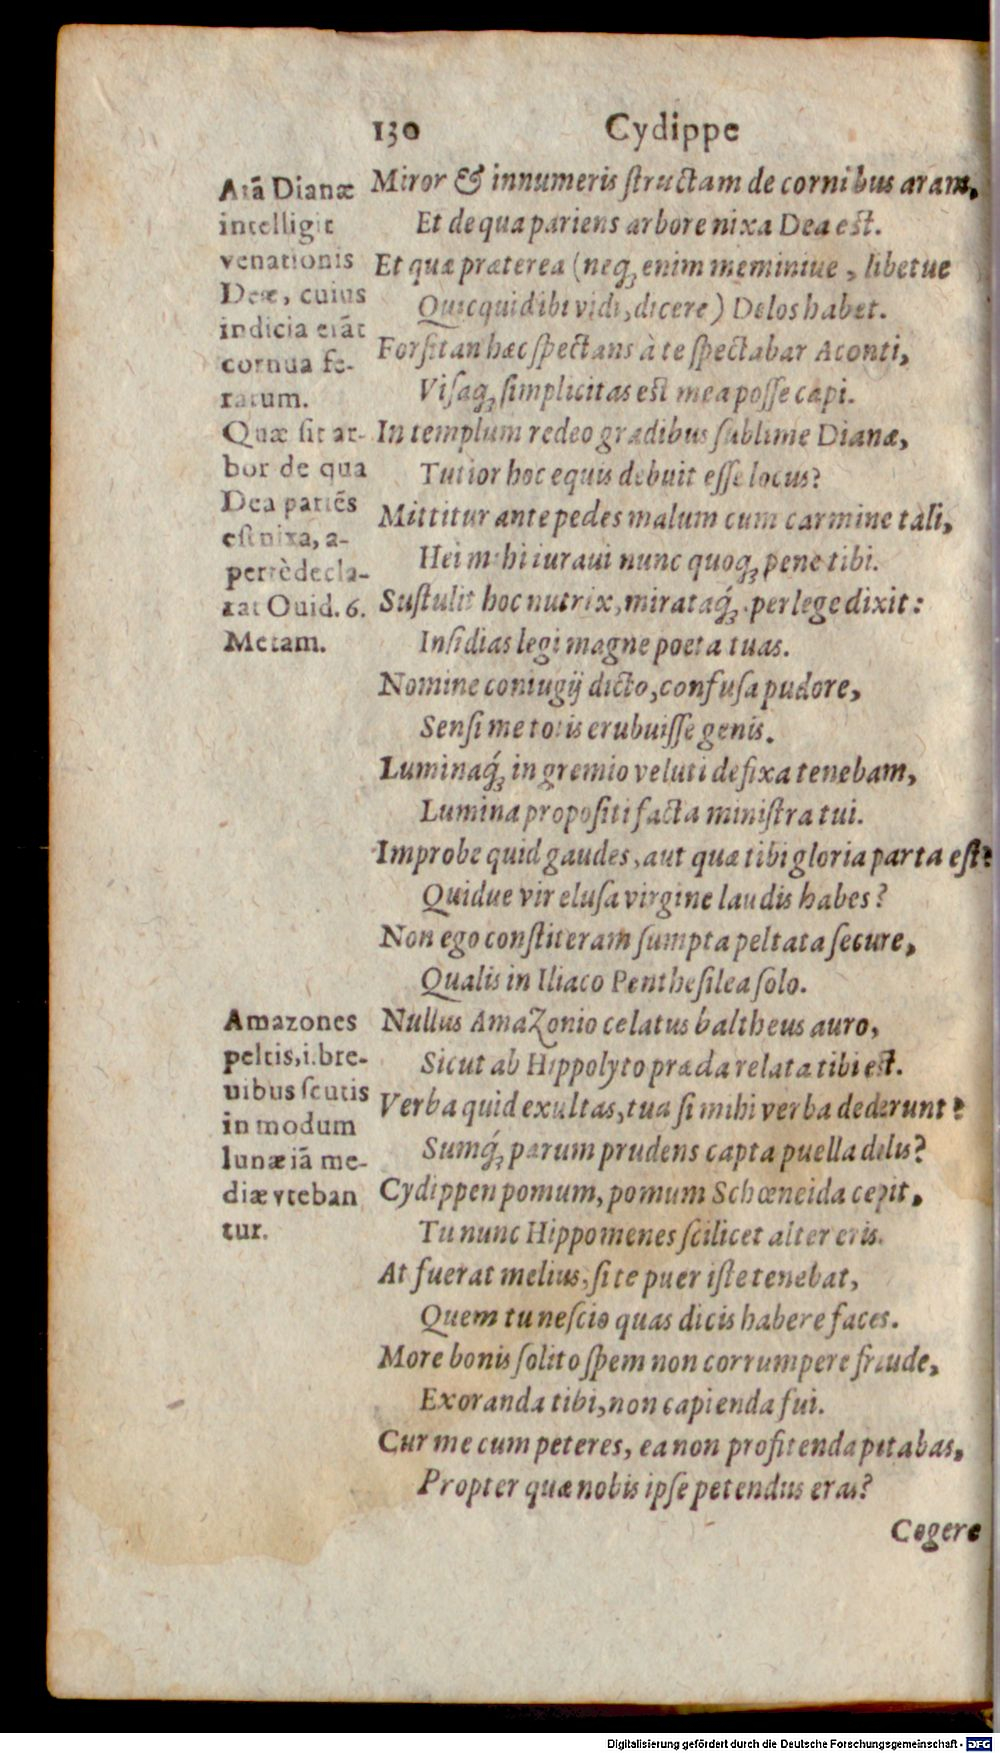 130 Cydippe
Miror & innumeris ſtructam de cornibus aram,
Et de qua pariens arbore nixa Dea est.
Et quæ præterea (neq; enim meminiue, libetue
Quicquid ibi vidi, dicere) Delos habet.
Forſitan hæc ſpectans à te ſpectabar Aconti,
Viſaq; ſimplicitas est mea poſſe capi.
In templum redeo gradibus ſublime Dianæ,
Tutior hoc equis debuit eſſe locus?
Mittitur ante pedes malum cum carmine tali,
Hei mihi iuraui nunc quoq; pene tibi.
Suſtulit hoc nutrix, mirataq́; perlege dixit:
Inſidias legi magne poeta tuas.
Nomine coniugij dicto, confuſa pudore,
Senſi me totis erubuiſſe genis.
Luminaq́; in gremio veluti defixa tenebam,
Lumina propoſiti facta miniſtra tui.
Improbe quid gaudes, aut quæ tibi gloria parta eſt?
Quidue vir eluſa virgine laudis habes?
Non ego conſtiteram ſumpta peltata ſecure,
Qualis in Iliaco Pentheſilea ſolo.
Nullus Amazonio celatus baltheus auro,
Sicut ab Hippolyto præda relata tibi est.
Verba quid exultas, tua ſi mihi verba dederunt?
Sumq́; parum prudens capta puella dolis?
Cydippen pomum, pomum Schœneida cepit,
Tu nunc Hippomenes ſcilicet alter eris.
At fuerat melius, ſi te puer iſte tenebat,
Quem tu neſcio quas dicis habere faces.
More bonis ſolito ſpem non corrumpere fraude,
Exoranda tibi, non capienda fui.
Cur me cum peteres, ea non profitenda putabas,
Propter quæ nobis ipſe petendus eras?
Cogere
Arā Dianæ
intelligit
venationis
Deæ, cuius
indicia erāt
cornua fe-
rarum.
Quæ ſit ar-
bor de qua
Dea pariēs
eſt nixa, a-
pertè decla-
rat Ouid. 6.
Metam.
Amazones
peltis, i. bre-
uibus ſcutis
in modum
lunæ iā me-
diæ vteban
tur.
Digitalisierung gefördert durch die Deutsche Forschungsgemeinschaft - DFG